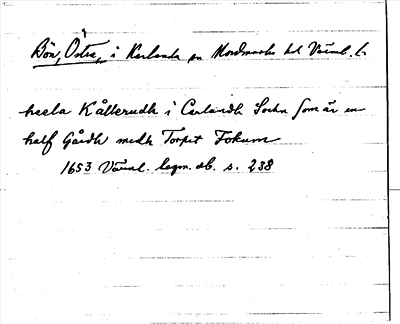 Bön, Östra, i Karlanda sn Nordmarks hd Värml. l.
heela Kållerudh i Carlandh Sochn som är en
helf Gårdh medh Torpet Fokum
1653 Värml. lagm. db. s. 238